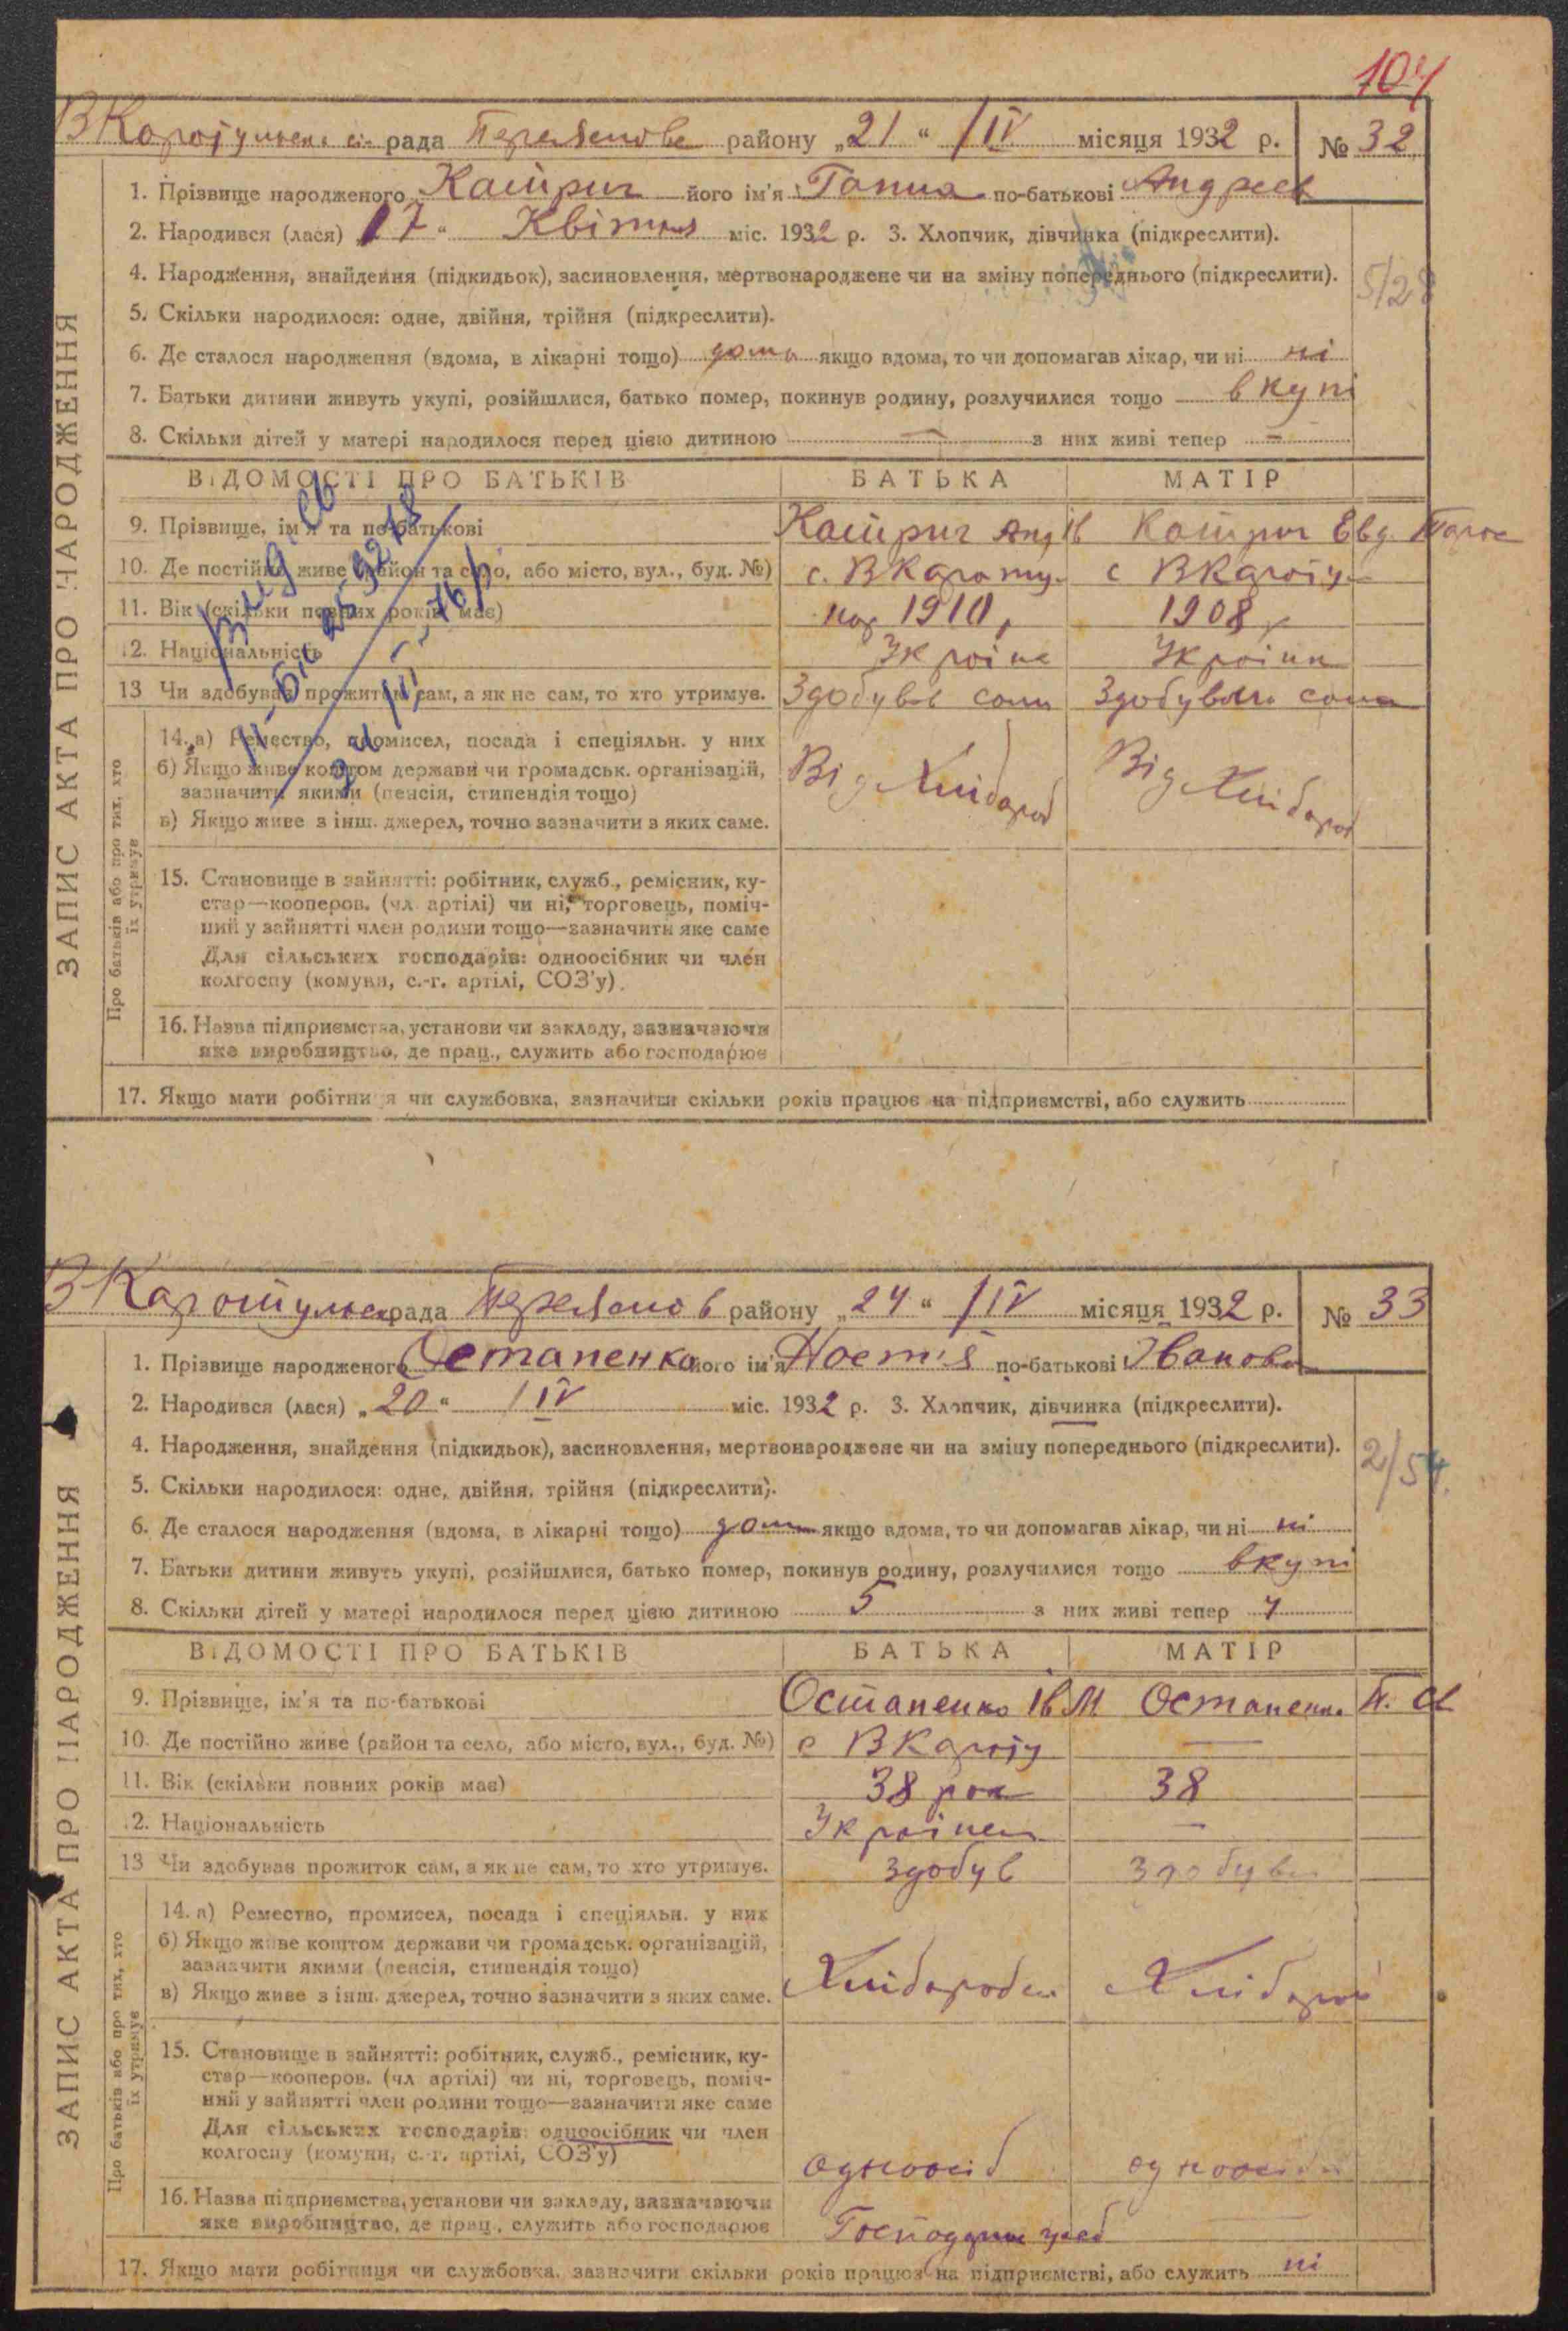 104
ВКаратульск. сіл. рада Переяслове району „21“ /IV місяця 1932 р. № 32
ЗАПИС АКТА ПРО НАРОДЖЕННЯ
1. Прізвище народженого його ім'я Ганна по-батькові Андреев
2. Народився (лася) „17“ Квітня міс. 1932 р. 3. Хлопчик, дівчинка (підкреслити).
4. Народження, знайдення (підкидьок), засиновлення, мертвонароджене чи на зміну попереднього (підкреслити).
5/28
5. Скільки народилося: одне, двійня, трійня (підкреслити).
6. Де сталося народження (вдома, в лікарні тощо) дома якщо вдома, то чи допомагав лікар, чи ні ні
7. Батьки дитини живуть укупі, розійшлися, батько помер, покинув родину, розлучилися тощо вкупі
8. Скільки дітей у матері народилося перед цією дитиною — з них живі тепер –
ВІДОМОСТІ ПРО БАТЬКІВ БАТЬКА МАТІР
9. Прізвище, ім'я та по-батькові
10. Де постійно живе (район та село, або місто, вул., буд. №) с. ВКарату. с ВКарату.
11. Вік (скільки повних років має) 1910 1908
12. Національність Україне Україн
13 Чи здобував прожиток сам, а як не сам, то хто утримує. Здобував сам Здобувала сама
Про батьків або про тих, хто їх утримує
14. а) Ремество, промисел, посада і спеціяльн. у них
б) Якщо живе коштом держави чи громадськ. організацій,
зазначити якими (пенсія, стипендія тощо)
Від Хлібороб Від Хлібороб
в) Якщо живе з інш. джерел, точно зазначити з яких саме.
15. Становище в зайнятті: робітник, служб., ремісник, ку-
стар—кооперов. (чл. артілі) чи ні, торговець, поміч-
ний у зайнятті член родини тощо—зазначити яке саме
Для сільських господарів: одноосібник чи член
колгоспу (комуни, с.-г. артілі, СОЗ'у).
16. Назва підприємства, установи чи закладу, зазначаючи
яке виробництво, де прац., служить або господарює
17. Якщо мати робітниця чи службовка, зазначити скільки років працює на підприємстві, або служить
ВКаратульськ рада Переяслов району „24“ /IV місяця 1932 р. № 33
ЗАПИС АКТА ПРО НАРОДЖЕННЯ
1. Прізвище народженого Остапенко його ім'я по-батькові Іванова
2. Народився (лася) „20“ /IV міс. 1932 р. 3. Хлопчик, дівчинка (підкреслити).
4. Народження, знайдення (підкидьок), засиновлення, мертвонароджене чи на зміну попереднього (підкреслити).
2/54
5. Скільки народилося: одне, двійня, трійня (підкреслити).
6. Де сталося народження (вдома, в лікарні тощо) дома якщо вдома, то чи допомагав лікар, чи ні ні
7. Батьки дитини живуть укупі, розійшлися, батько помер, покинув родину, розлучилися тощо вкупі
8. Скільки дітей у матері народилося перед цією дитиною 5 з них живі тепер 4
ВІДОМОСТІ ПРО БАТЬКІВ БАТЬКА МАТІР
9. Прізвище, ім'я та по-батькові Остапенко Ів М Остапенко
10. Де постійно живе (район та село, або місто, вул., буд. №) с ВКарату —
11. Вік (скільки повних років має) 38 рок 38
12. Національність Українец –
13 Чи здобував прожиток сам, а як не сам, то хто утримує. здобув здобува
Про батьків або про тих, хто їх утримує
14. а) Ремество, промисел, посада і спеціяльн. у них
б) Якщо живе коштом держави чи громадськ. організацій,
зазначити якими (пенсія, стипендія тощо)
в) Якщо живе з інш. джерел, точно зазначити з яких саме. Хлібороб Хлібороб
15. Становище в зайнятті: робітник, служб., ремісник, ку-
стар—кооперов. (чл. артілі) чи ні, торговець, поміч-
ний у зайнятті член родини тощо—зазначити яке саме
Для сільських господарів: одноосібник чи член
колгоспу (комуни, с.-г. артілі, СОЗ'у) одноосіб одноосіб
16. Назва підприємства, установи чи закладу, зазначаючи
яке виробництво, де прац., служить або господарює —
17. Якщо мати робітниця чи службовка, зазначити скільки років працює на підприємстві, або служить ні